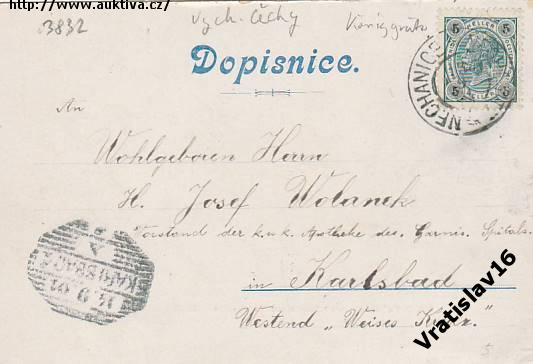 http://www.auktiva.cz/
3832
Vých. Čechy
Königgrätz
Dopisnice.
5 HELLER 5
5 5
NECHANICE
An
Wohlgeboren Herrn
H. Josef Wolanek
Vorstand der k.u.k. Apotheke des Garnis. Spitals
in Karlsbad
Westend „Weises Kreuz."
KARLSBAD
14 9 01
A
Vratislav16